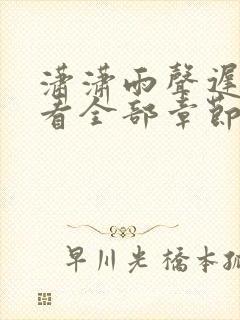 瀟瀟雨聲遲
者全部章節
早川光橋本孤